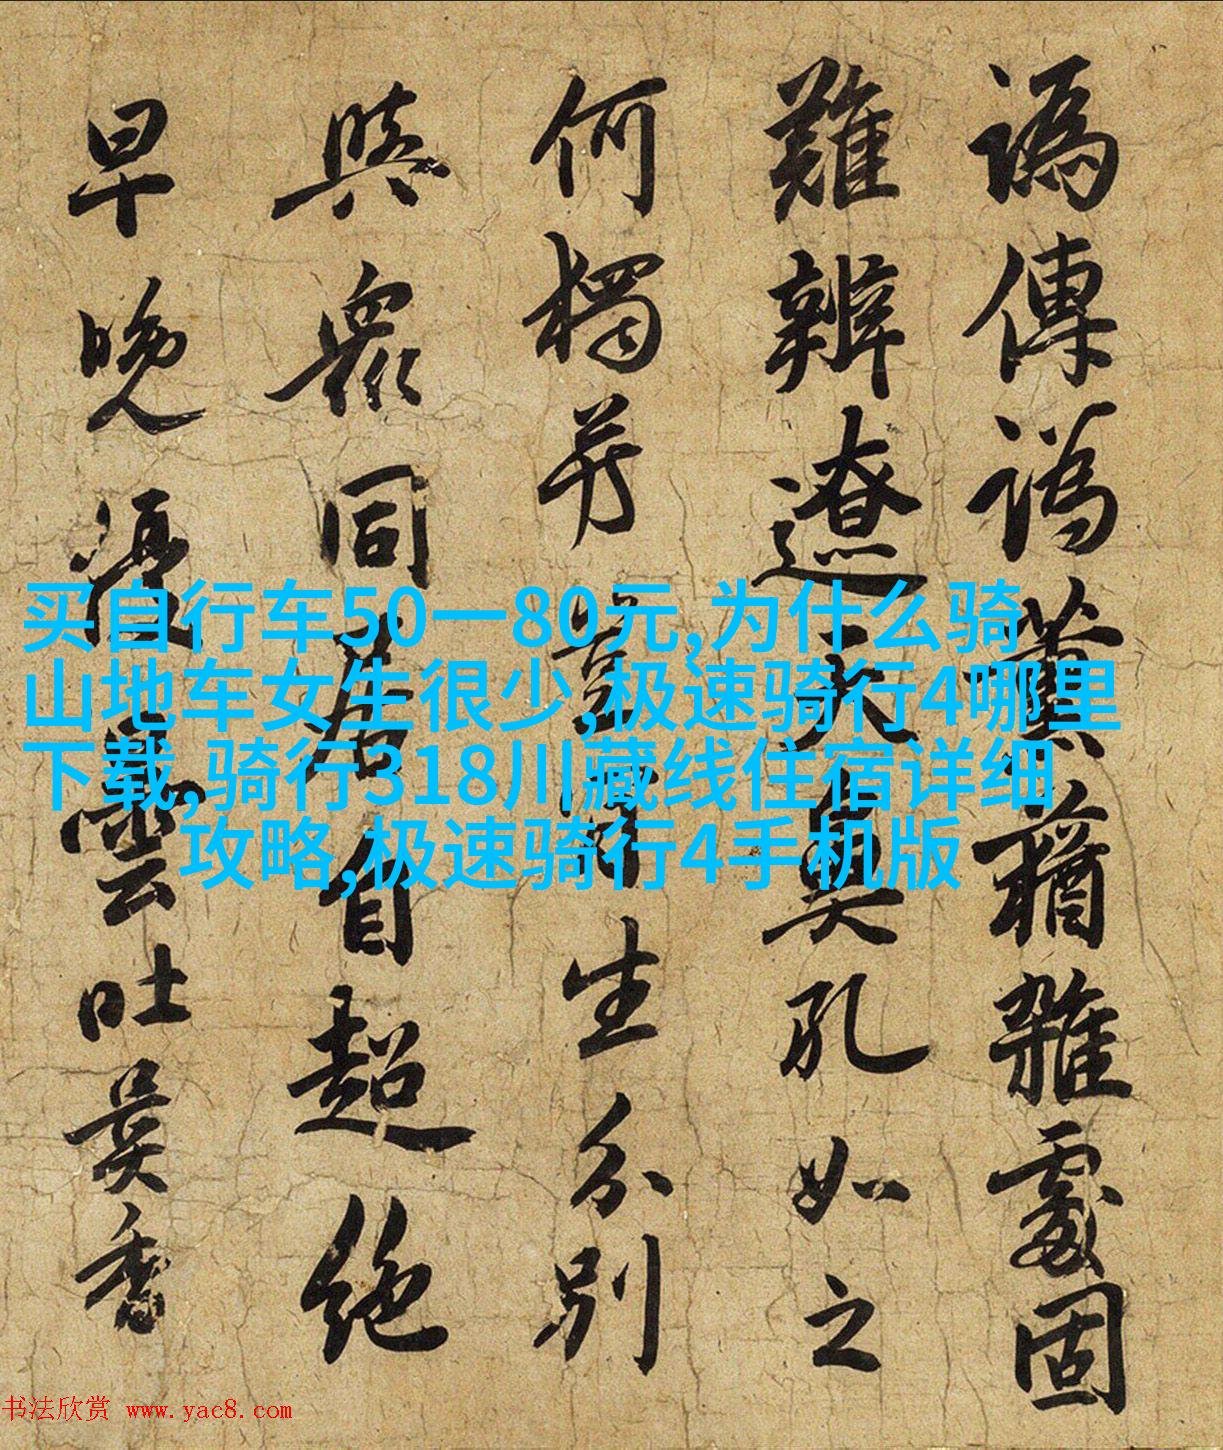 譌傳譌薰蕕雜處固
難辨遼天鼻孔如之
何獨生分別
與眾同居自超絕
早晚雲吐異香
买自行车50一80元,为什么骑
山地车女生很少,极速骑行4哪里
下载,骑行318川藏线住宿详细
攻略,极速骑行4手机版
书法欣赏 www.yac8.com